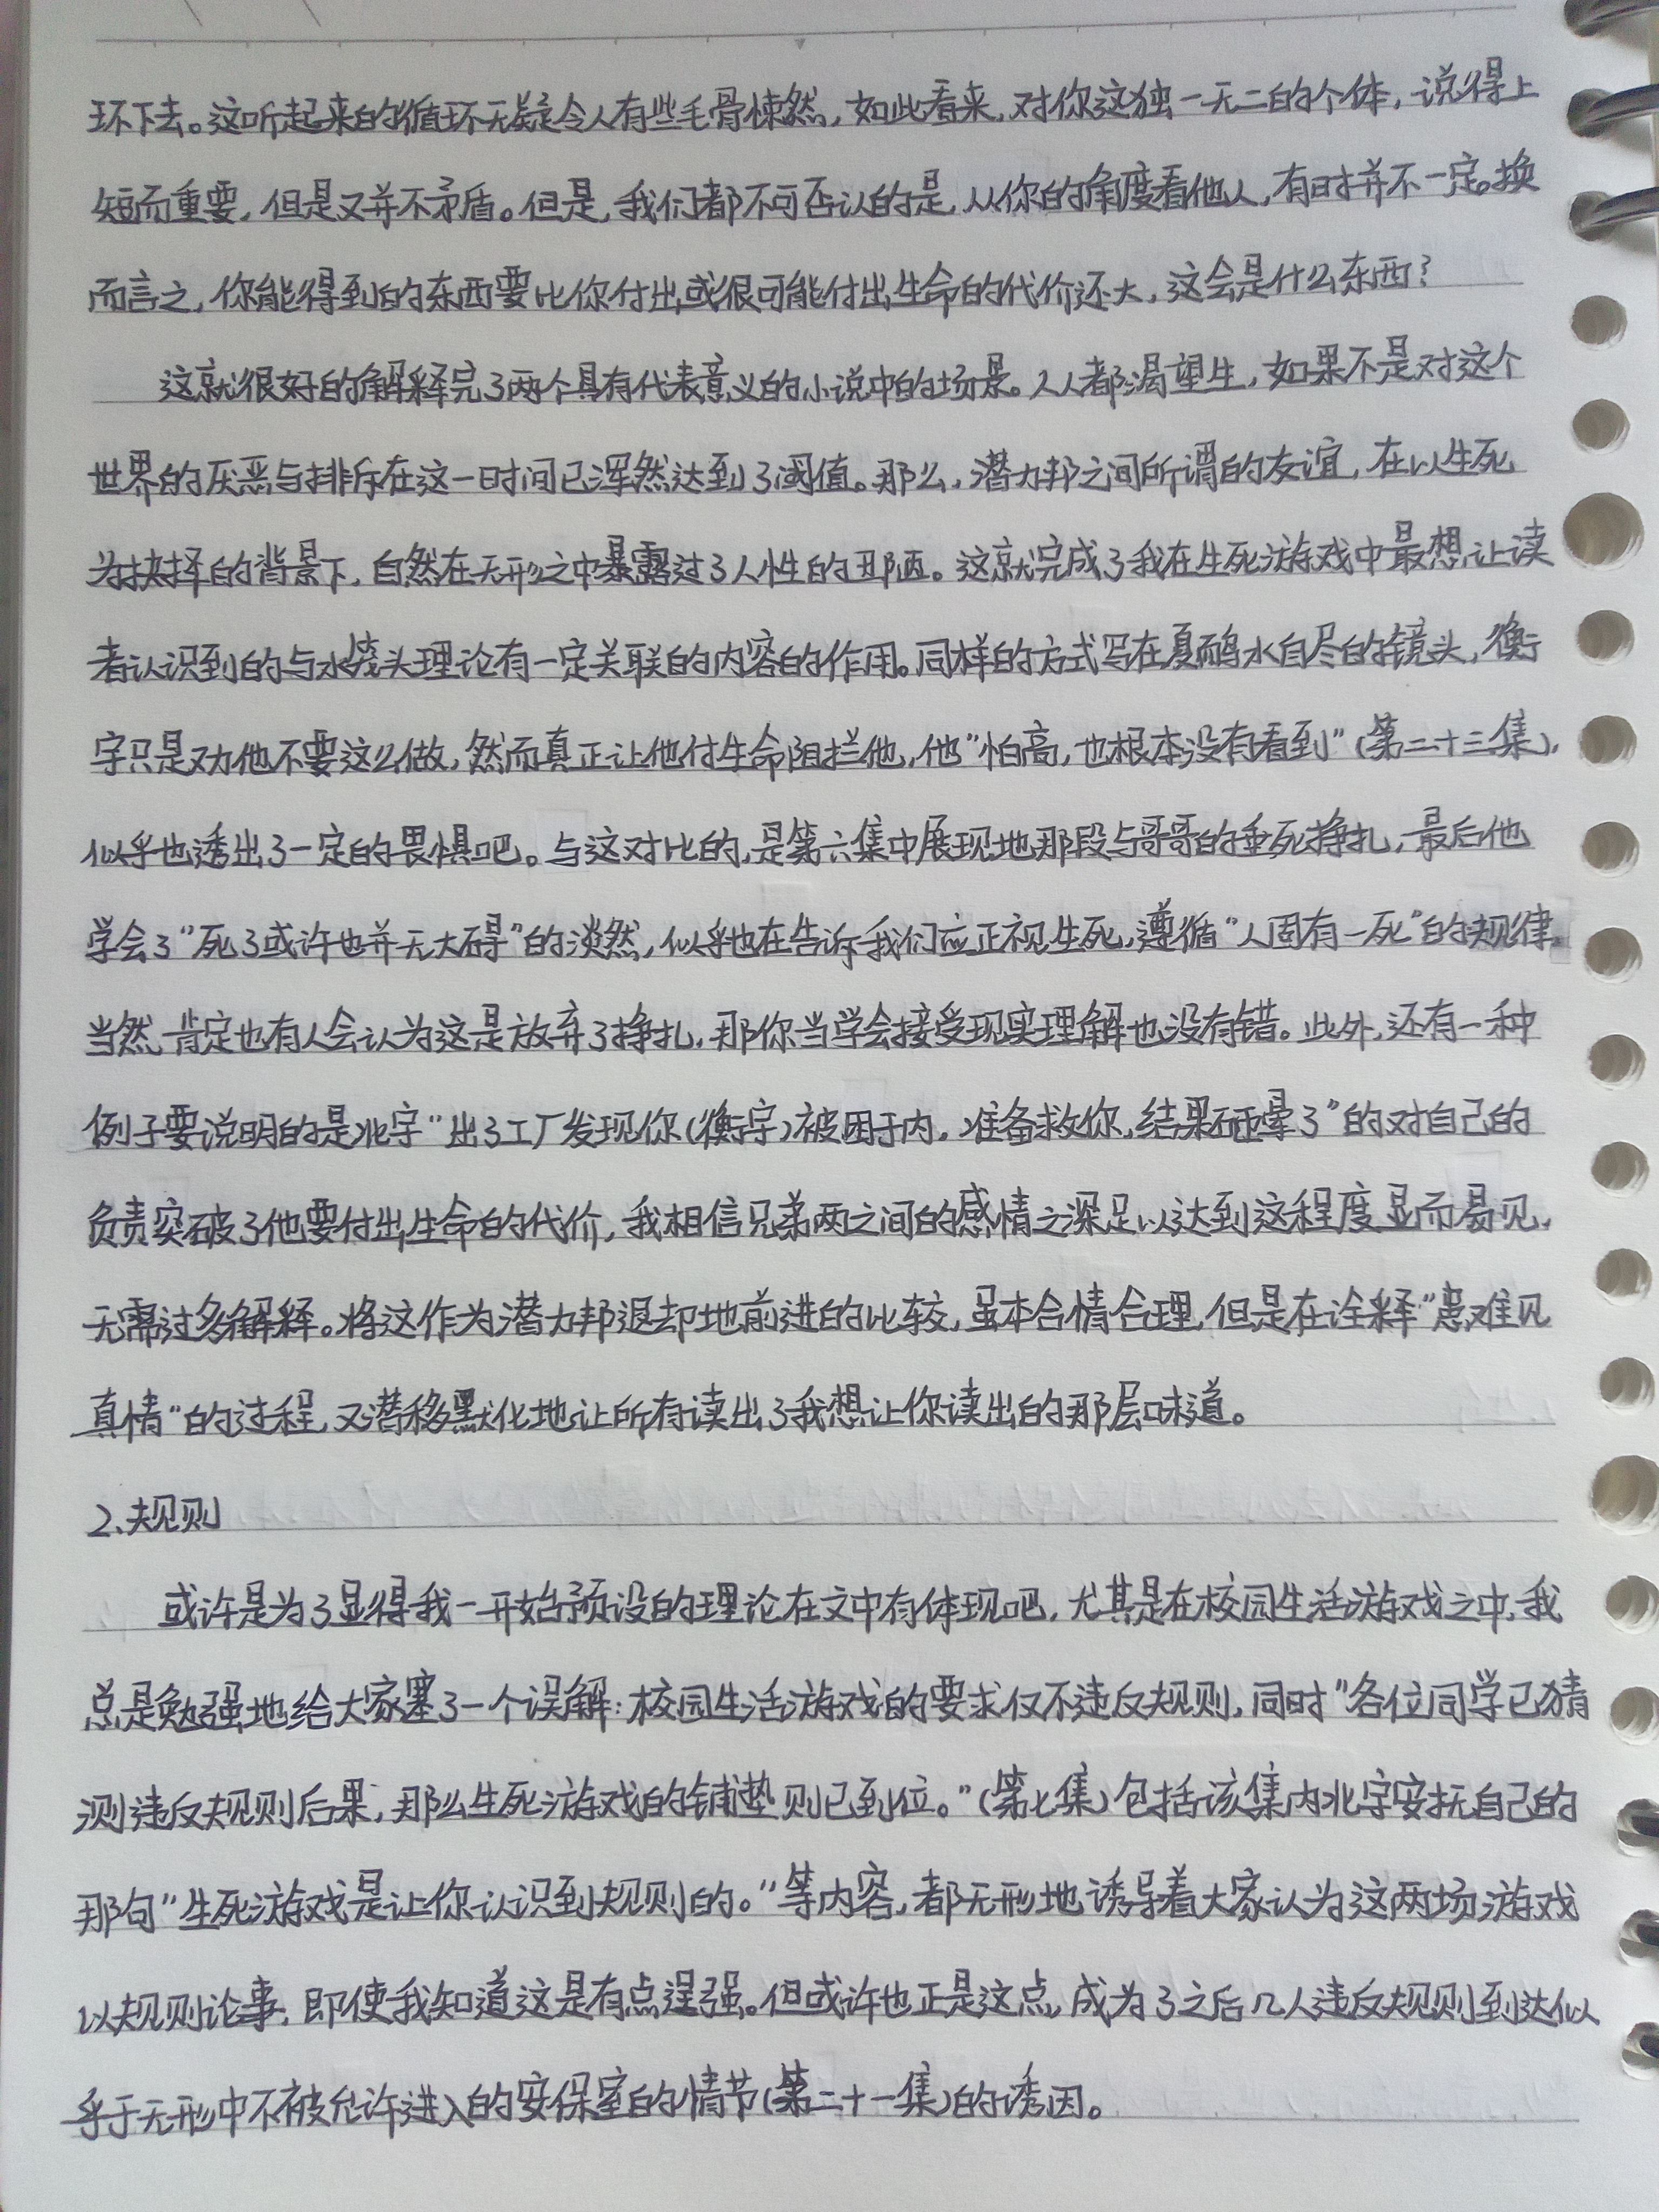 环下去。这听起来的循环无疑令人有些毛骨悚然，如此看来，对你这独一无二的个体，说得上
短而重要，但是又并不矛盾。但是，我们都不可否认的是，从你的角度看他人，有时并不一定。换
而言之，你能得到的东西要比你付出或很可能付出生命的代价还大，这会是什么东西？
这就很好的解释完了两个具有代表意义的小说中的场景。人人都渴望生，如果不是对这个
世界的厌恶与排斥在这一时间已浑然达到了阈值。那么，潜力邦之间所谓的友谊，在以生死
为抉择的背景下，自然在无形之中暴露过了人性的丑陋。这就完成了我在生死游戏中最想让读
者认识到的与水笼头理论有一定关联的内容的作用。同样的方式写在夏硝水自尽的镜头，衡
宇只是劝他不要这么做，然而真正让他付生命阻拦他，他“怕高，也根本没有看到”（第二十三集），
似乎也透出了一定的畏惧吧。与这对比的，是第六集中展现地那段与哥哥的垂死挣扎，最后他
学会了“死了或许也并无大碍”的淡然，似乎也在告诉我们应正视生死，遵循“人固有一死”的规律。
当然，肯定也有人会认为这是放弃了挣扎，那你当学会接受现实理解也没有错。此外，还有一种
例子要说明的是北宇“出了工厂发现你（衡宇）被困于内，准备救你，结果砸晕了”的对自己的
负责突破了他要付出生命的代价，我相信兄弟两之间的感情之深足以达到这程度显而易见，
无需过多解释。将这作为潜力邦退却地前进的比较，虽本合情合理，但是在诠释“患难见
真情”的过程，又潜移默化地让所有读出了我想让你读出的那层味道。
2、规则
或许是为了显得我一开始预设的理论在文中有体现吧，尤其是在校园生活游戏之中，我
总是勉强地给大家塞了一个误解：校园生活游戏的要求仅不违反规则，同时“各位同学已猜
测违反规则后果，那么生死游戏的铺垫则已到位。”（第七集）包括该集内北宇安抚自己的
那句“生死游戏是让你认识到规则的。”等内容，都无形地诱导着大家认为这两场游戏
以规则论事，即使我知道这是有点逞强。但或许也正是这点，成为了之后几人违反规则到达似
乎于无形中不被允许进入的安保室的情节（第二十一集）的诱因。